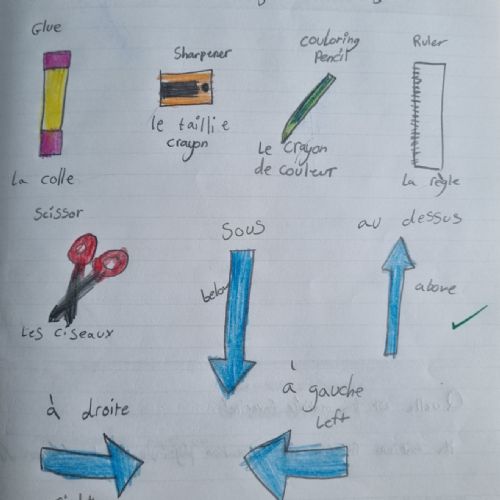 Glue
Sharpener
couloring
Pencil
Ruler
le taillie
crayon
Le crayon
de couleur
La colle
La règle
Scissor
Sous
au dessus
below
above
Les ciseaux
à gauche
Left
à droite